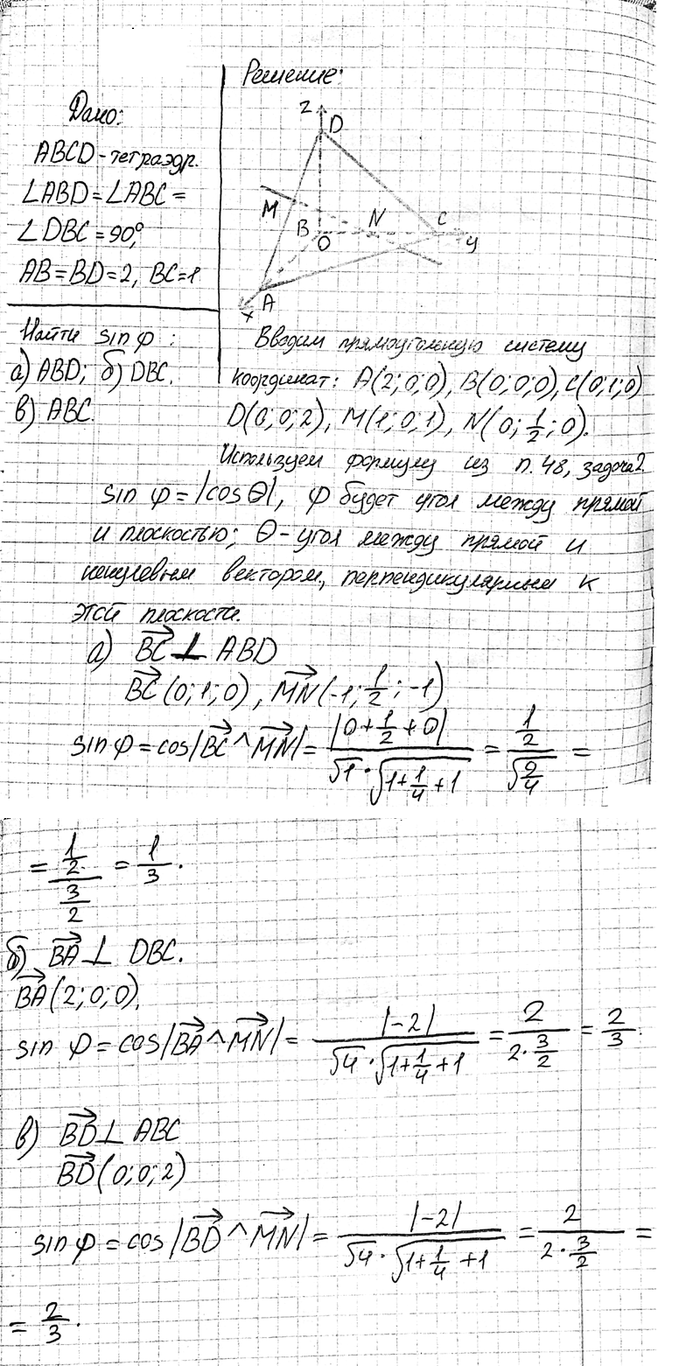 Решение:
Дано:
ABCD - тетраэдр.
∠ABD = ∠ABC =
∠DBC = 90°,
AB = BD = 2, BC = 1
Найти sin φ :
а) ABD; б) DBC.
в) ABC.
z
D
M
B
O
N
C
y
A
x
Вводим прямоугольную систему
координат: A(2;0;0), B(0;0;0), C(0;1;0)
D(0;0;2), M(1;0;1), N(0; 1/2; 0).
Используем формулу из п. 48, задача 2
sin φ = |cos Θ|, φ будет угол между прямой
и плоскостью; Θ - угол между прямой и
ненулевым вектором, перпендикулярным к
этой плоскости.
а) BC⃗ ⊥ ABD
BC⃗ (0; 1; 0), MN⃗ (-1; 1/2; -1)
sin φ = cos|BC⃗ ^ MN⃗| = |0 + 1/2 + 0| / (√1 · √(1 + 1/4 + 1)) = (1/2) / √(9/4) =
= (1/2) / (3/2) = 1/3.
б) BA⃗ ⊥ DBC.
BA⃗ (2; 0; 0).
sin φ = cos|BA⃗ ^ MN⃗| = |-2| / (√4 · √(1 + 1/4 + 1)) = 2 / (2 · 3/2) = 2/3.
в) BD⃗ ⊥ ABC
BD⃗ (0; 0; 2)
sin φ = cos|BD⃗ ^ MN⃗| = |-2| / (√4 · √(1 + 1/4 + 1)) = 2 / (2 · 3/2) =
= 2/3.